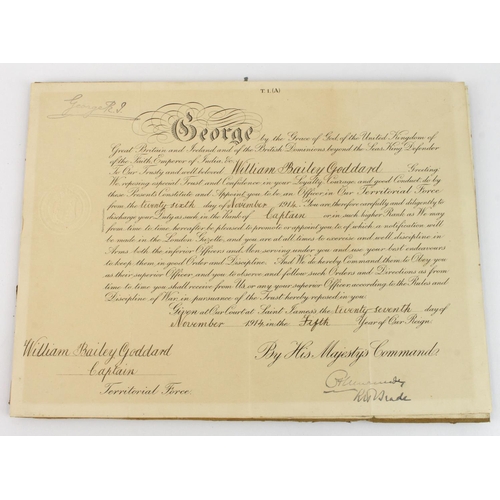 T.1.(A)
George R.I.
George by the Grace of God of the United Kingdom of
Great Britain and Ireland and of the British Dominions beyond the Seas King Defender
of the Faith, Emperor of India, &c.
To Our Trusty and well beloved William Bailey Goddard Greeting
We, reposing special Trust and Confidence in your Loyalty, Courage, and good Conduct, do by
these Presents Constitute and Appoint you to be an Officer in Our Territorial Force
from the twenty sixth day of November 1914. You are therefore carefully and diligently to
discharge your Duty as such in the Rank of Captain or in such higher Rank as We may
from time to time hereafter be pleased to promote or appoint you to, of which a notification will
be made in the London Gazette, and you are at all times to exercise and well discipline in
Arms both the inferior Officers and Men serving under you and use your best endeavours
to keep them in good Order and Discipline. And We do hereby Command them to Obey you
as their superior Officer, and you to observe and follow such Orders and Directions as from
time to time you shall receive from Us, or any your superior Officer, according to the Rules and
Discipline of War, in pursuance of the Trust hereby reposed in you.
Given at Our Court at Saint James's, the twenty seventh day of
November 1914 in the Fifth Year of Our Reign
William Bailey Goddard
Captain
Territorial Force.
By His Majesty's Command,